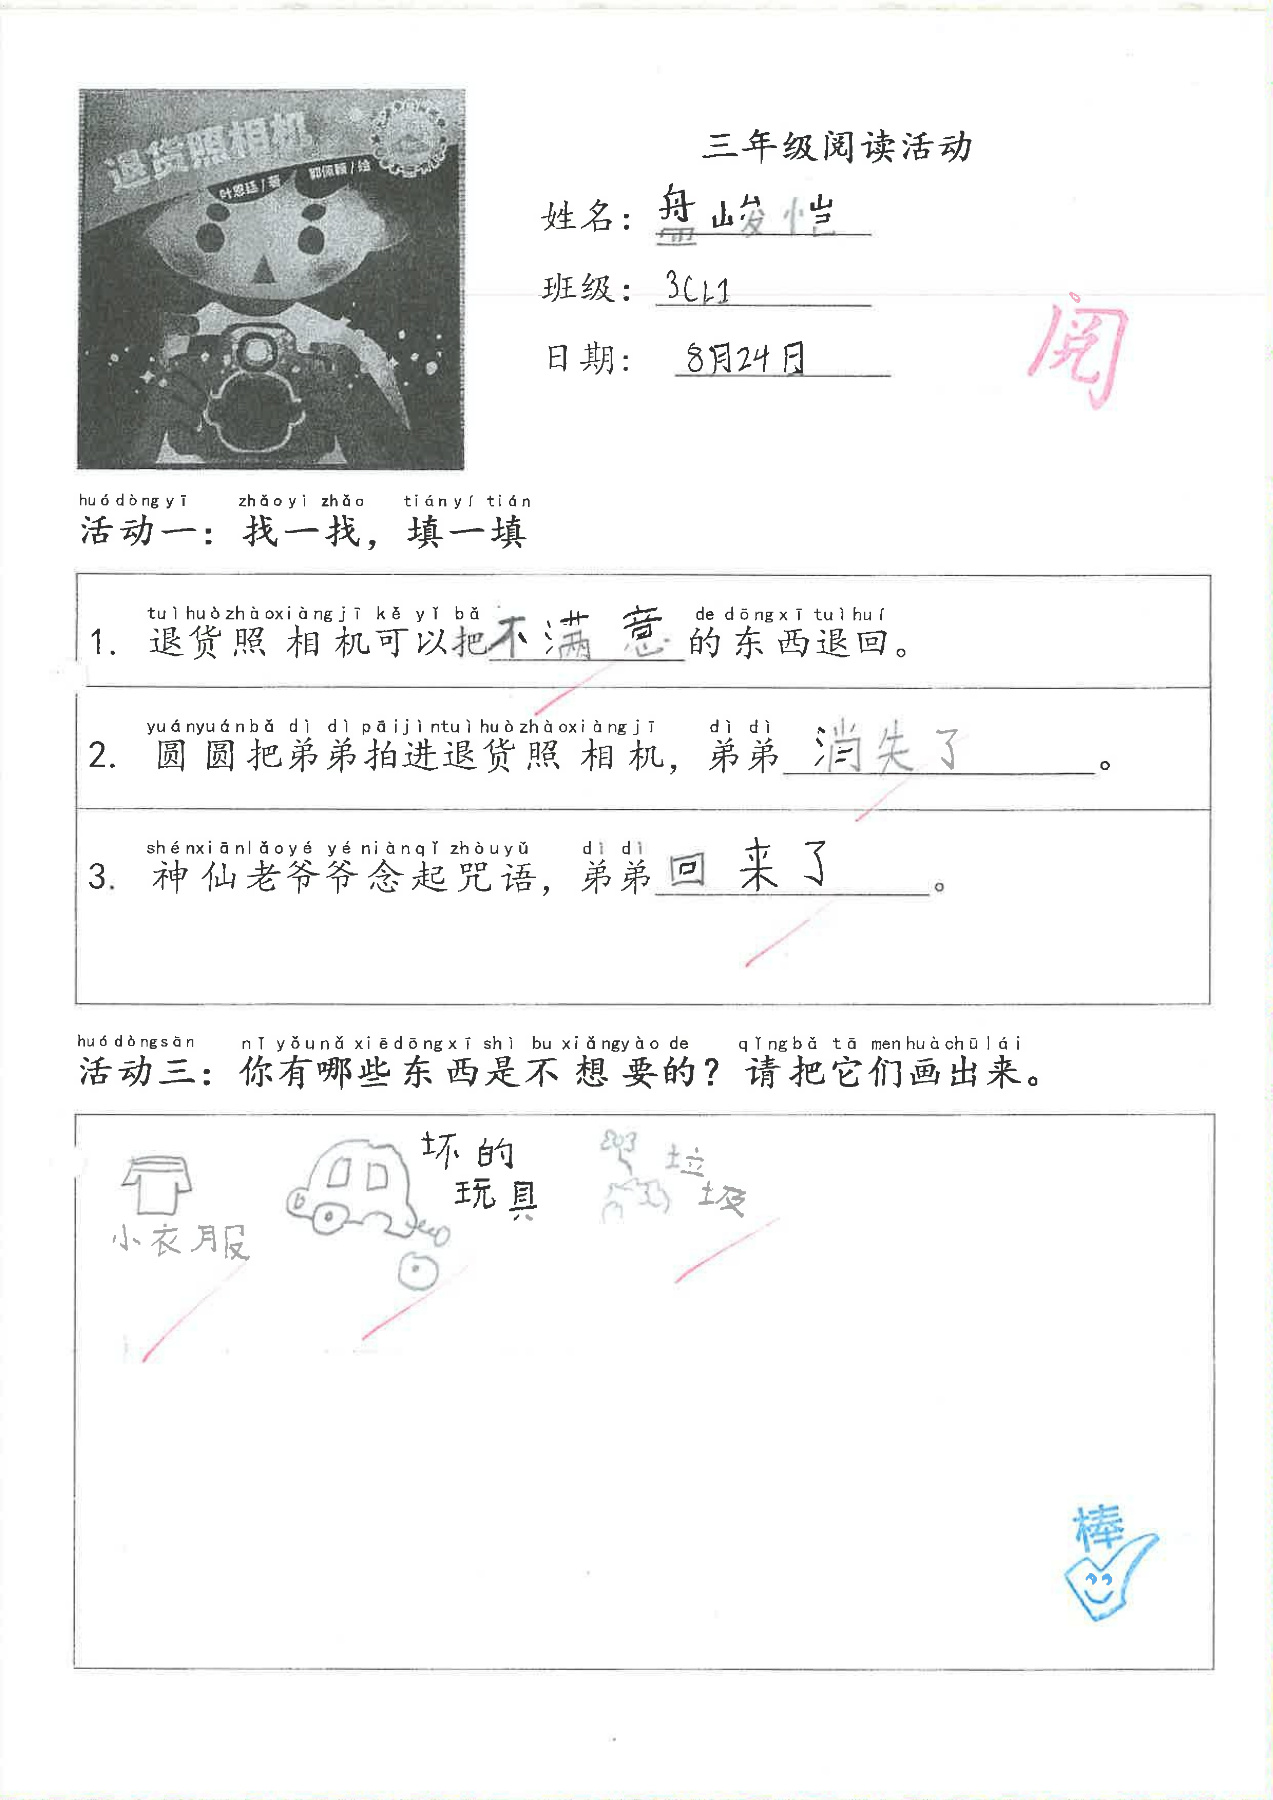 退货照相机
叶恩廷/著 郭佩颖/绘
三年级阅读活动
姓名：盘峻恺
班级：3CL1
日期：8月24日
阅
huódòngyī zhǎoyìzhǎo tiányítián
活动一：找一找，填一填
tuìhuòzhàoxiàngjī kěyǐbǎ de dōngxītuìhuí
1. 退货照相机可以把不满意的东西退回。
yuányuánbǎ dì dì pāijìntuìhuòzhàoxiàngjī dì dì
2. 圆圆把弟弟拍进退货照相机，弟弟消失了。
shénxiānlǎoyé yé niànqǐ zhòuyǔ dì dì
3. 神仙老爷爷念起咒语，弟弟回来了。
huódòngsān nǐ yǒunǎ xiēdōngxī shì bu xiǎngyào de qǐngbǎ tā menhuàchūlái
活动三：你有哪些东西是不想要的？请把它们画出来。
小衣服
坏的
玩具
垃
圾
棒